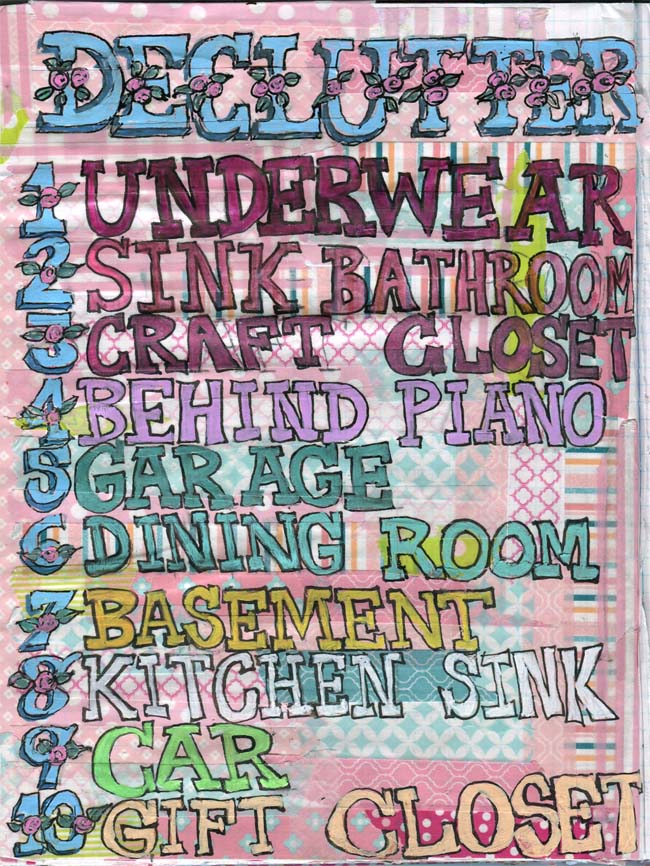 DECLUTTER
1 UNDERWEAR
2 SINK BATHROOM
3 CRAFT CLOSET
4 BEHIND PIANO
5 GARAGE
6 DINING ROOM
7 BASEMENT
8 KITCHEN SINK
9 CAR
10 GIFT CLOSET